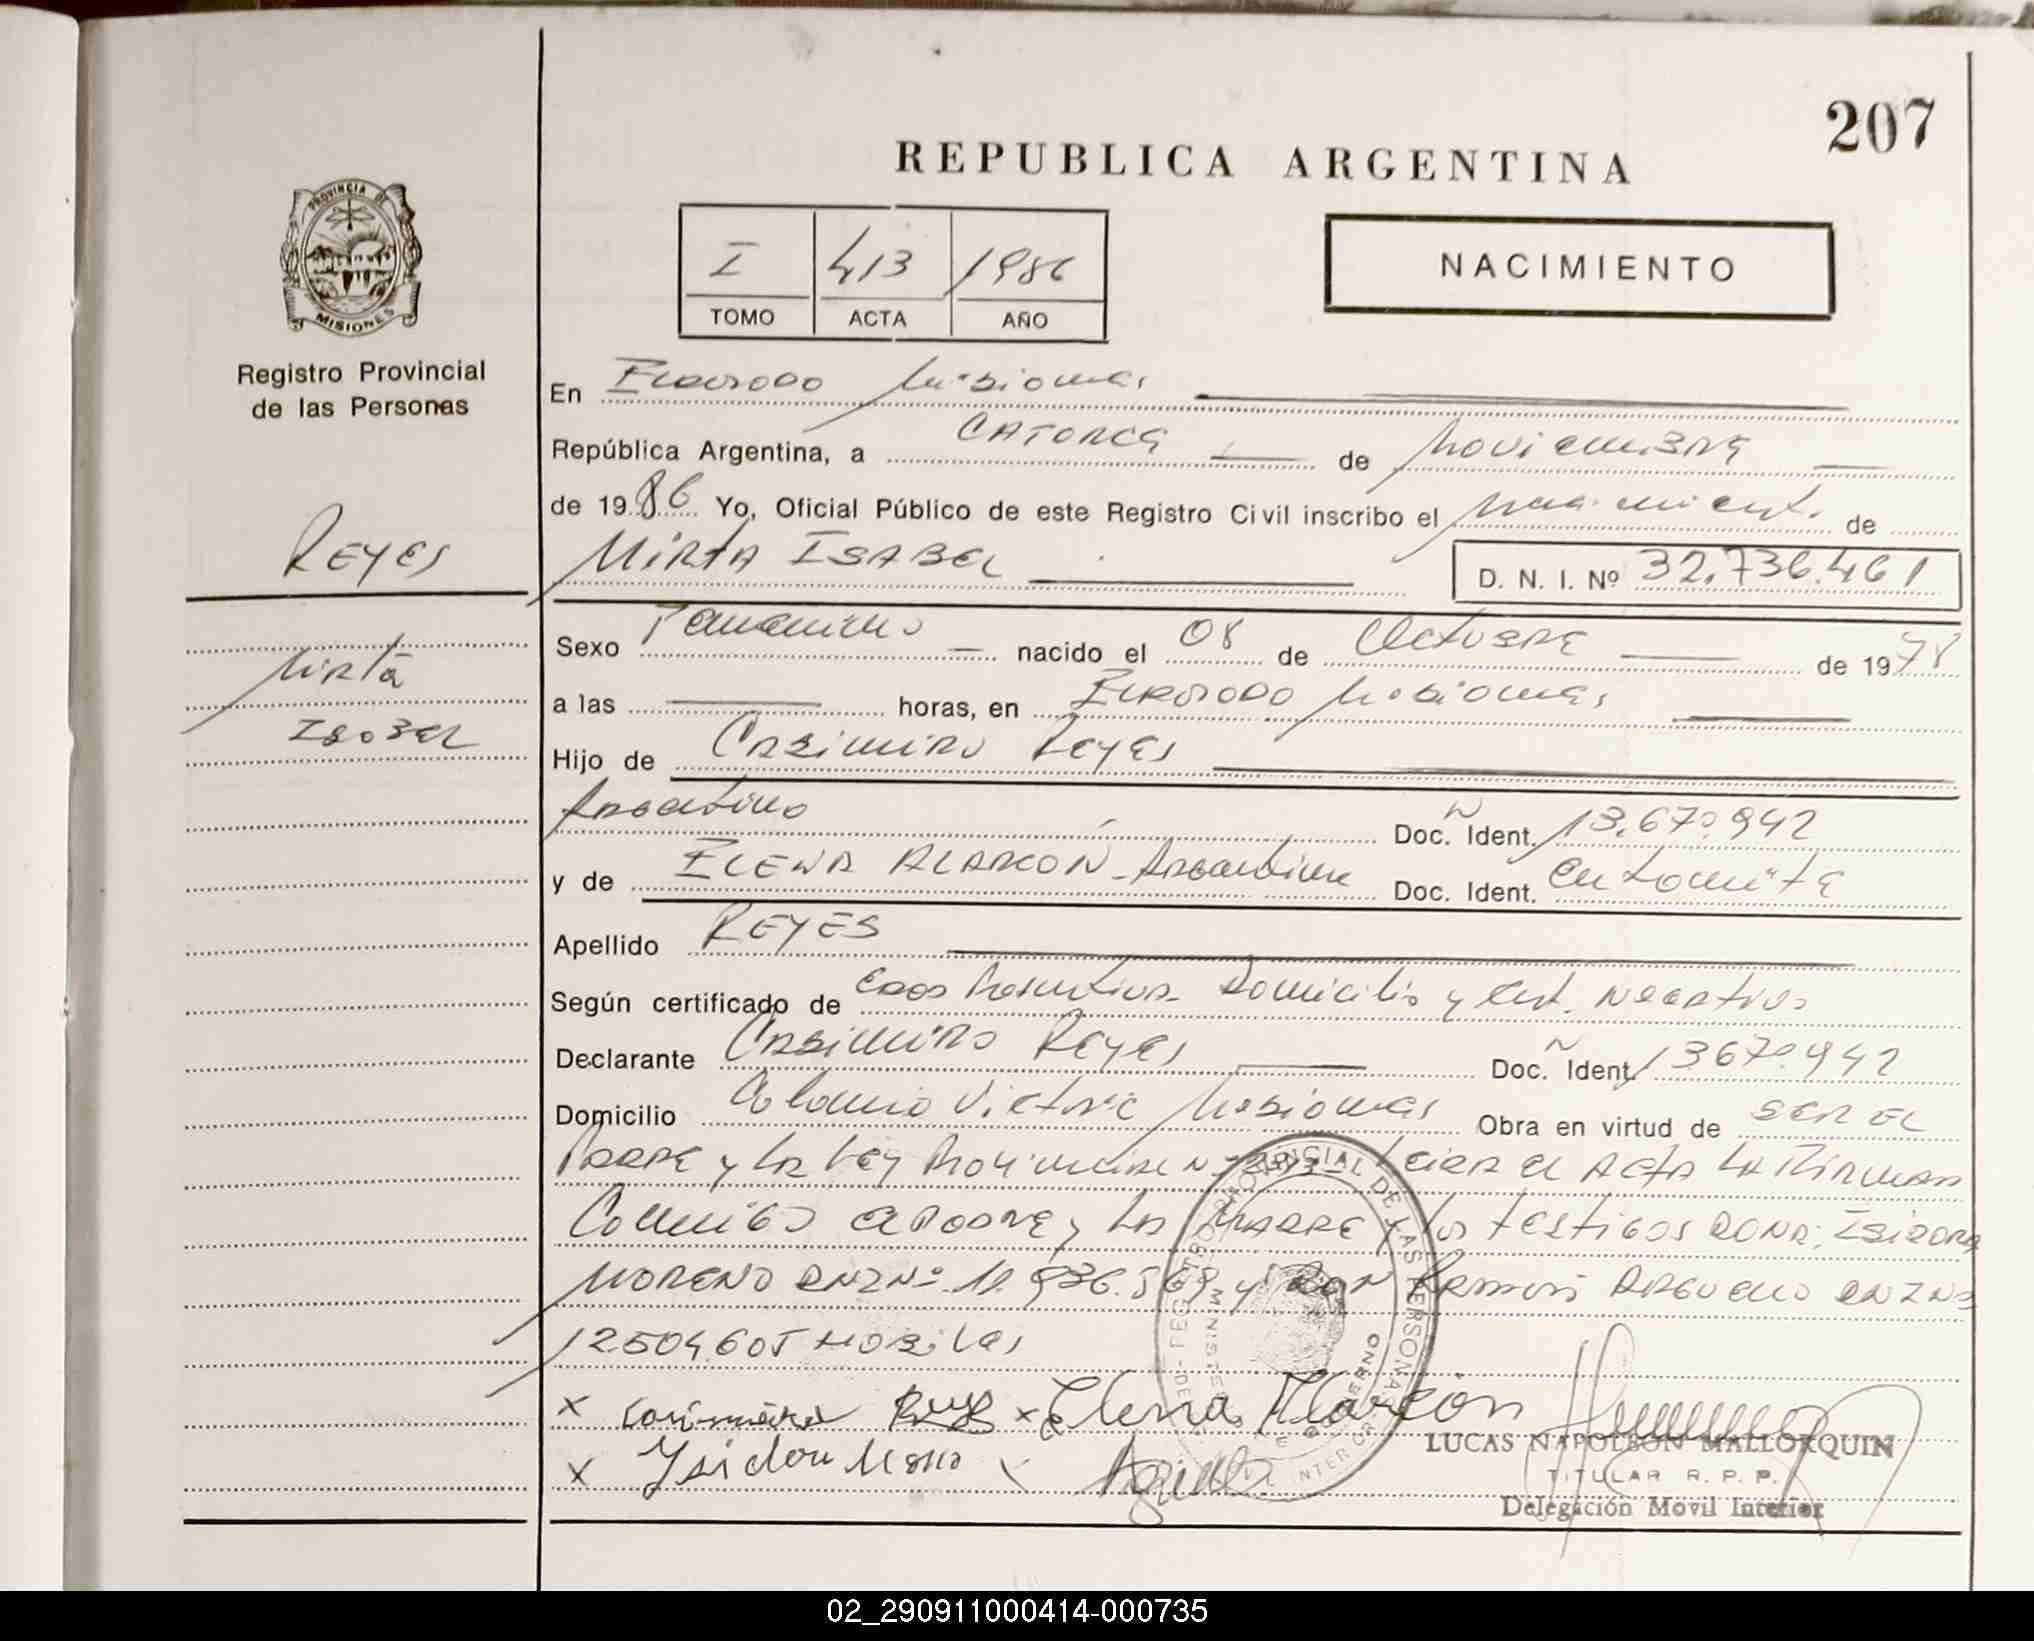 207
REPUBLICA ARGENTINA
PROVINCIA DE
MISIONES
I 413 1986
TOMO ACTA AÑO
NACIMIENTO
Registro Provincial
de las Personas
En Eldorado Misiones
República Argentina, a CATORCE de Noviembre
de 1986 Yo, Oficial Público de este Registro Civil inscribo el nacimiento de
REYES
MIRTA ISABEL D. N. I. Nº 32.736.461
Mirta
Isabel
Sexo Femenino nacido el 08 de Octubre de 1978
a las horas, en Eldorado Misiones
Hijo de Casimiro Reyes
Argentino Doc. Ident. 13.670.942
y de ELENA ALARCON - Argentina Doc. Ident. en tramite
Apellido REYES
Según certificado de Domicilio y cert. Negativo
Declarante Casimiro Reyes Doc. Ident. 13670.942
Domicilio Colonia Victoria Misiones Obra en virtud de SER EL
PADRE y la Ley Provincial Nº Leida el Acta la Firman
Conmigo el PADRE y LA MADRE y los testigos DOÑA: ISIDORA
MORENO DNI Nº y DON Ramon ARGUELLO DNI Nº
12504605 Hobiles
x Casimiro Reyes x Elena Alarcón
x Ysidora Moreno x
LUCAS NAPOLEON MALLORQUIN
TITULAR R. P. P.
Delegación Movil Interior
02_290911000414-000735